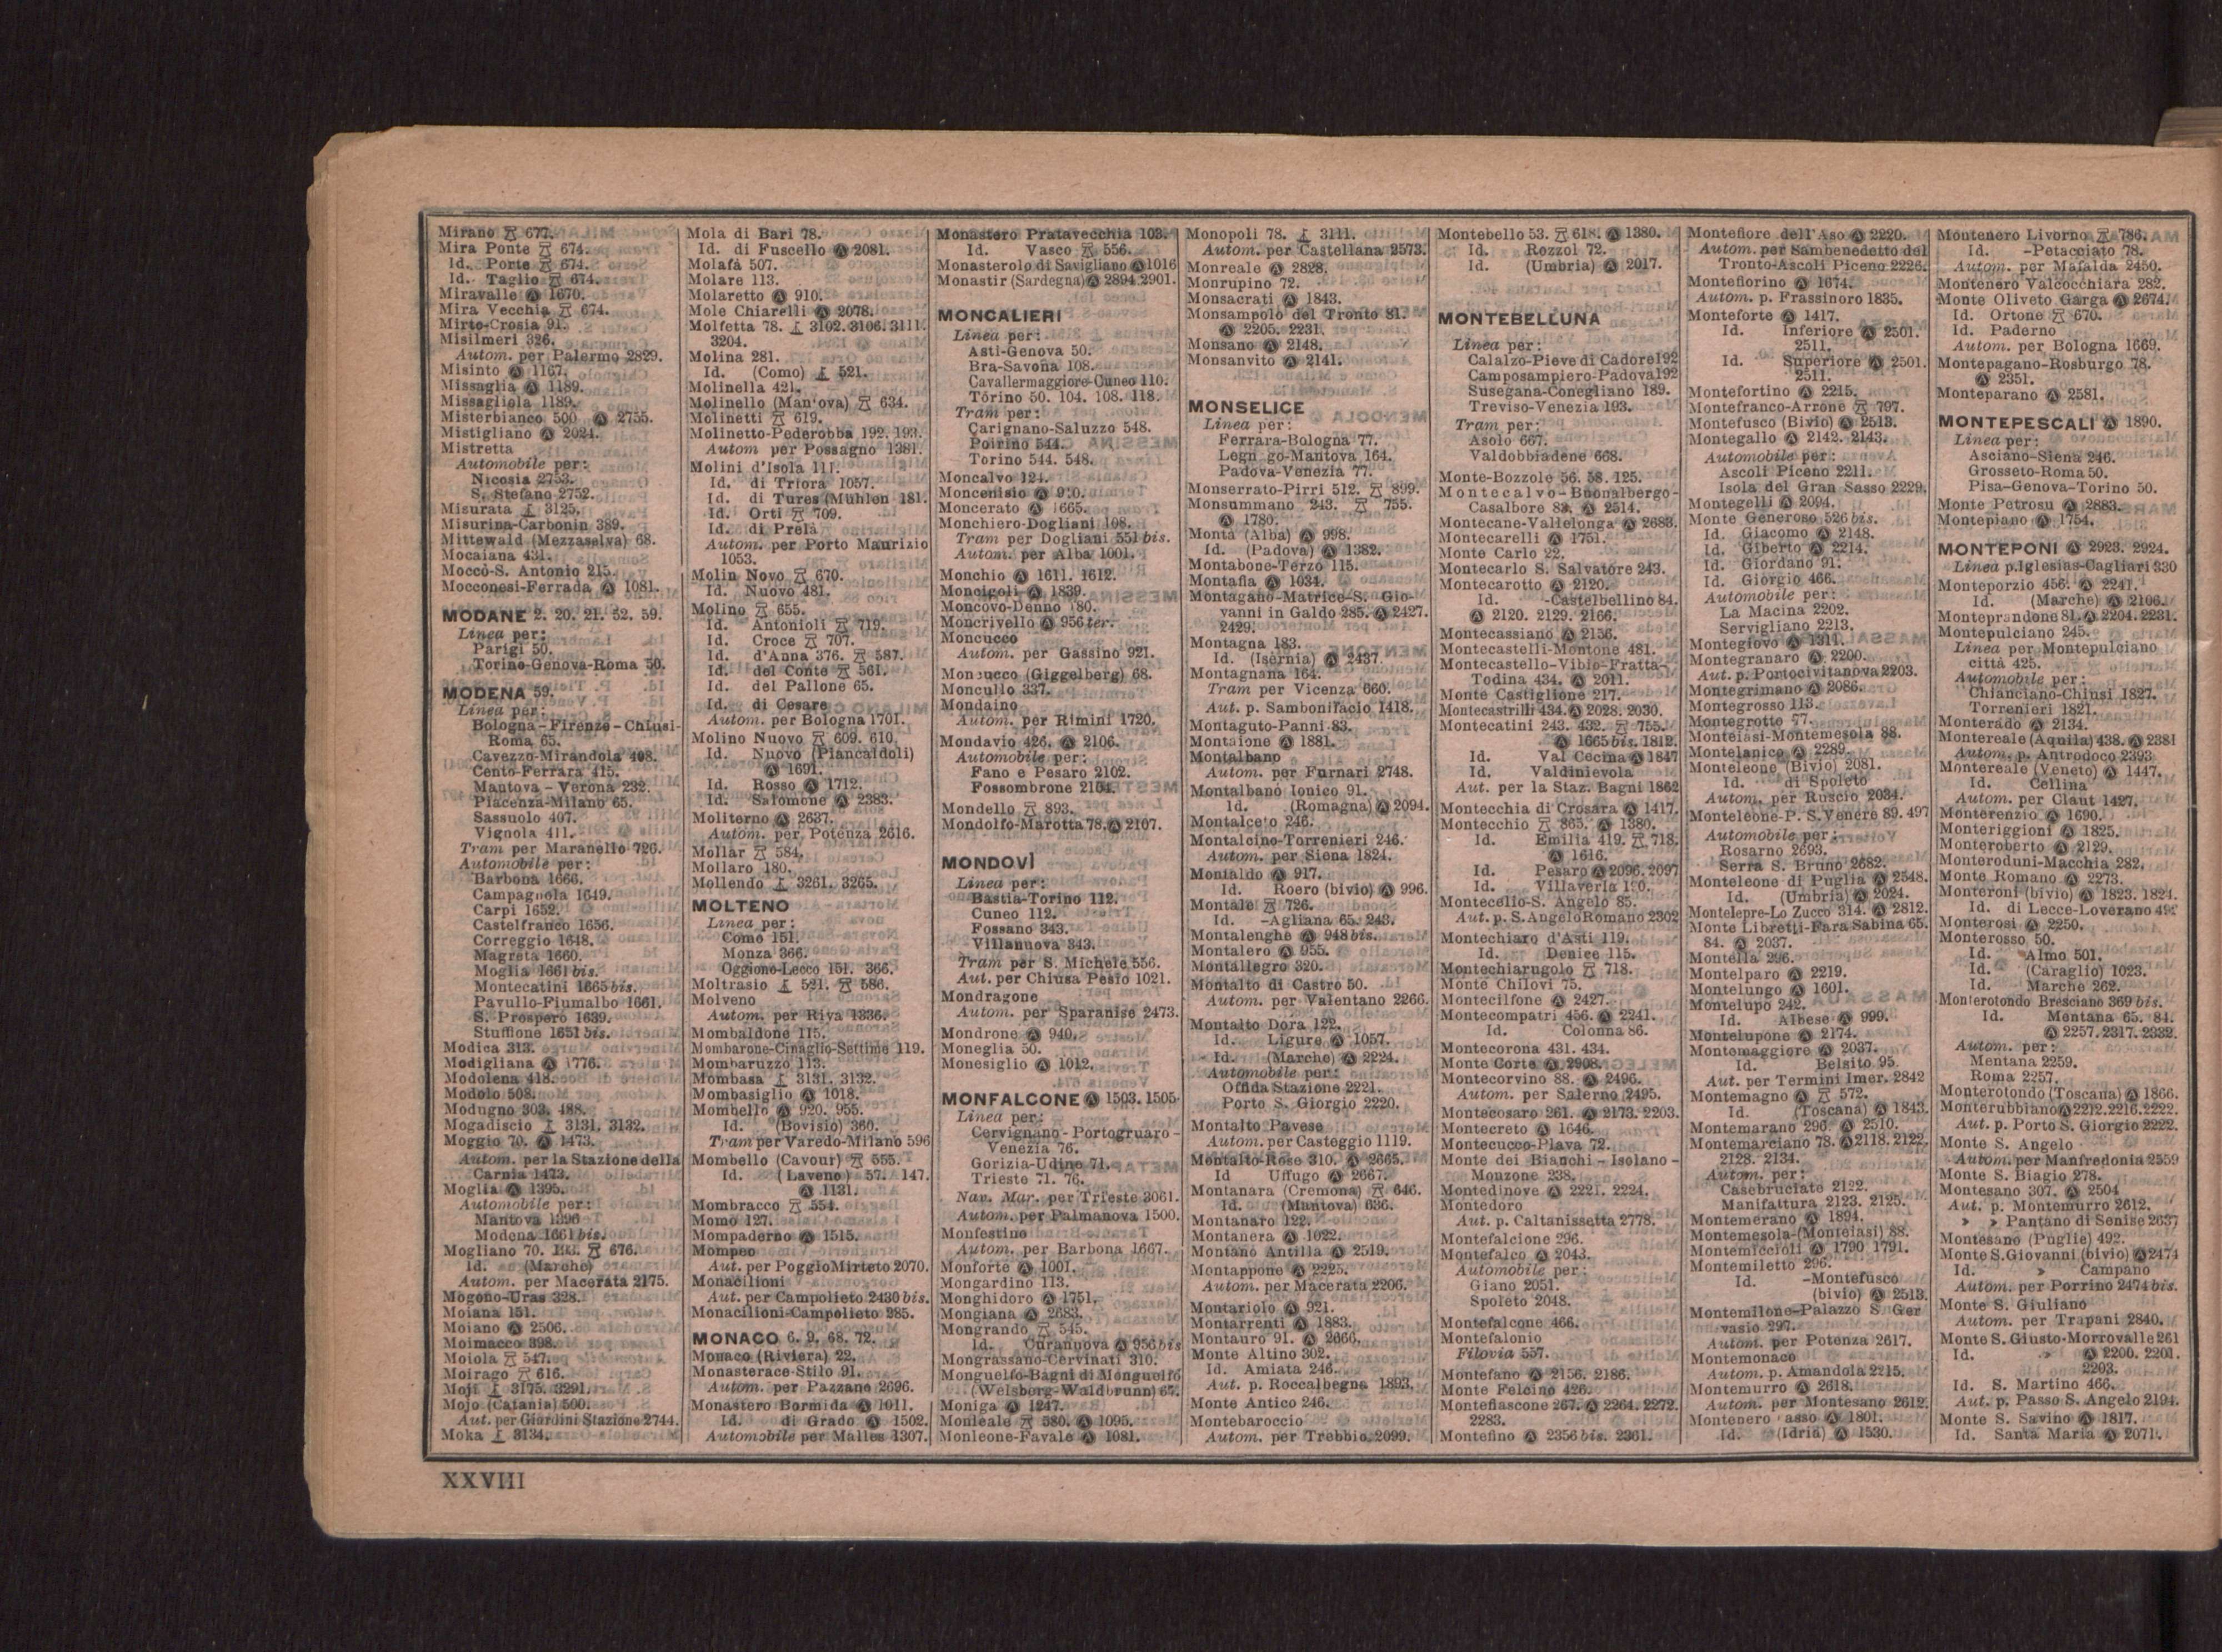 Mirano 677.
Mira Ponte 674.
Id. Porte 674.
Id. Taglio 674.
Miravalle Ⓐ 1670.
Mira Vecchia 674.
Mirto-Crosia 91.
Misilmeri 326.
Autom. per Palermo 2829.
Misinto Ⓐ 1167.
Missaglia Ⓐ 1189.
Missagliola 1189.
Misterbianco 500 Ⓐ 2755.
Mistigliano Ⓐ 2024.
Mistretta
Automobile per:
Nicosia 2753.
S. Stefano 2752.
Misurata 3125.
Misurina-Carbonin 389.
Mittewald (Mezzaselva) 68.
Mocaiana 431.
Moccò-S. Antonio 215.
Mocconesi-Ferrada Ⓐ 1081.
MODANE 2. 20. 21. 52. 59.
Linea per:
Parigi 50.
Torino-Genova-Roma 50.
MODENA 59.
Linea per:
Bologna-Firenze-Chiusi-
Roma 65.
Cavezzo-Mirandola 408.
Cento-Ferrara 415.
Mantova-Verona 232.
Piacenza-Milano 65.
Sassuolo 407.
Vignola 411.
Tram per Maranello 726.
Automobile per:
Barbona 1666.
Campagnola 1649.
Carpi 1652.
Castelfranco 1656.
Correggio 1648.
Magreta 1660.
Moglia 1661 bis.
Montecatini 1665 bis.
Pavullo-Fiumalbo 1661.
S. Prospero 1639.
Stuffione 1651 bis.
Modica 313.
Modigliana Ⓐ 1776.
Modolena 418.
Modolo 508.
Modugno 303. 488.
Mogadiscio 3131. 3132.
Moggio 70. Ⓐ 1473.
Autom. per la Stazione della
Carnia 1473.
Moglia Ⓐ 1395.
Automobile per:
Mantova 1396
Modena 1661 bis.
Mogliano 70. 676.
Id. (Marche)
Autom. per Macerata 2175.
Mogoro-Uras 328.
Moiana 151.
Moiano Ⓐ 2506.
Moimacco 398.
Moiola 547.
Moirago 616.
Moji 3175. 3291.
Mojo (Catania) 500.
Aut. per Giardini Stazione 2744.
Moka 3134.
Mola di Bari 78.
Id. di Fuscello Ⓐ 2081.
Molafà 507.
Molare 113.
Molaretto Ⓐ 910.
Mole Chiarelli Ⓐ 2078.
Molfetta 78. 3102. 3106. 3111.
3204.
Molina 281.
Id. (Como) 521.
Molinella 421.
Molinello (Man'ova) 634.
Molinetti 619.
Molinetto-Pederobba 192. 193.
Autom per Possagno 1381.
Molini d'Isola 111.
Id. di Triora 1057.
Id. di Tures (Mühlen 181.
Id. Orti 709.
Id. di Prelà
Autom. per Porto Maurizio
1053.
Molin Novo 670.
Id. Nuovo 481.
Molino 655.
Id. Antonioli 719.
Id. Croce 707.
Id. d'Anna 376. 587.
Id. del Conte 561.
Id. del Pallone 65.
Id. di Cesare
Autom. per Bologna 1701.
Molino Nuovo 609. 610.
Id. Nuovo (Piancaldoli)
Ⓐ 1691.
Id. Rosso Ⓐ 1712.
Id. Salomone Ⓐ 2383.
Moliterno Ⓐ 2637.
Autom. per Potenza 2616.
Mollar 584.
Mollaro 180.
Mollendo 3261. 3265.
MOLTENO
Linea per:
Como 151.
Monza 366.
Oggiono-Lecco 151. 366.
Moltrasio 521. 586.
Molveno
Autom. per Riva 1336.
Mombaldone 115.
Mombarone-Cinaglio-Settime 119.
Mombaruzzo 113.
Mombasa 3131. 3132.
Mombasiglio Ⓐ 1018.
Mombello Ⓐ 920. 955.
Id. (Bovisio) 360.
Tram per Varedo-Milano 596
Mombello (Cavour) 555.
Id. (Laveno) 57. 147.
Ⓐ 1131.
Mombracco 554.
Momo 127.
Mompaderno Ⓐ 1515.
Mompeo
Aut. per Poggio Mirteto 2070.
Monacilioni
Aut. per Campolieto 2430 bis.
Monacilioni-Campolieto 285.
MONACO 6. 9. 68. 72.
Monaco (Riviera) 22.
Monasterace-Stilo 91.
Autom. per Pazzano 2696.
Monastero Bormida Ⓐ 1011.
Id. di Grado Ⓐ 1502.
Automobile per Malles 1307.
Monastero Pratavecchia 103.
Id. Vasco 556.
Monasterolo di Savigliano Ⓐ 1016
Monastir (Sardegna) Ⓐ 2894. 2901.
MONCALIERI
Linea per:
Asti-Genova 50.
Bra-Savona 108.
Cavallermaggiore-Cuneo 110.
Torino 50. 104. 108. 118.
Tram per:
Carignano-Saluzzo 548.
Poirino 544.
Torino 544. 548.
Moncalvo 124.
Moncenisio Ⓐ 910.
Moncerato Ⓐ 1665.
Monchiero-Dogliani 108.
Tram per Dogliani 551 bis.
Autom. per Alba 1001.
Monchio Ⓐ 1611. 1612.
Moncigoli Ⓐ 1839.
Moncovo-Denno 180.
Moncrivello Ⓐ 956 ter.
Moncucco
Autom. per Gassino 921.
Moncucco (Giggelberg) 68.
Moncullo 337.
Mondaino
Autom. per Rimini 1720.
Mondavio 426. Ⓐ 2106.
Automobile per:
Fano e Pesaro 2102.
Fossombrone 2104.
Mondello 893.
Mondolfo-Marotta 78. Ⓐ 2107.
MONDOVÌ
Linea per:
Bastia-Torino 112.
Cuneo 112.
Fossano 343.
Villanuova 343.
Tram per S. Michele 556.
Aut. per Chiusa Pesio 1021.
Mondragone
Autom. per Sparanise 2473.
Mondrone Ⓐ 940.
Moneglia 50.
Monesiglio Ⓐ 1012.
MONFALCONE Ⓐ 1503. 1505
Linea per:
Cervignano-Portogruaro-
Venezia 76.
Gorizia-Udine 71.
Trieste 71. 76.
Nav. Mar. per Trieste 3061.
Autom. per Palmanova 1500.
Monfestino
Autom. per Barbona 1667.
Monforte Ⓐ 1001.
Mongardino 113.
Monghidoro Ⓐ 1751.
Mongiana Ⓐ 2683.
Mongrando 545.
Id. Curanuova Ⓐ 956 bis
Mongrassano-Cervinati 310.
Monguelfo-Bagni di Monguelfo
(Welsberg-Waldbrunn) 67.
Moniga Ⓐ 1247.
Monleale 580. Ⓐ 1095.
Monleone-Favale Ⓐ 1081.
Monopoli 78. 3111.
Autom. per Castellana 2573.
Monreale Ⓐ 2828.
Monrupino 72.
Monsacrati Ⓐ 1843.
Monsampolo del Tronto 81.
Ⓐ 2205. 2231.
Monsano Ⓐ 2148.
Monsanvito Ⓐ 2141.
MONSELICE
Linea per:
Ferrara-Bologna 77.
Legn go-Mantova 164.
Padova-Venezia 77.
Monserrato-Pirri 512. 899.
Monsummano 243. 755.
Ⓐ 1780.
Montà (Alba) Ⓐ 998.
Id. (Padova) Ⓐ 1382.
Montabone-Terzo 115.
Montafia Ⓐ 1034.
Montagano-Matrice-S. Gio-
vanni in Galdo 285. Ⓐ 2427.
2429.
Montagna 183.
Id. (Isernia) Ⓐ 2437.
Montagnana 164.
Tram per Vicenza 660.
Aut. p. Sambonifacio 1418.
Montaguto-Panni 83.
Montaione Ⓐ 1881.
Montalbano
Autom. per Furnari 2748.
Montalbano Ionico 91.
Id. (Romagna) Ⓐ 2094.
Montalceto 246.
Montalcino-Torrenieri 246.
Autom. per Siena 1824.
Montaldo Ⓐ 917.
Id. Roero (bivio) Ⓐ 996.
Montale 726.
Id. -Agliana 65. 243.
Montalenghe Ⓐ 948 bis.
Montalero Ⓐ 955.
Montallegro 320.
Montalto di Castro 50.
Autom. per Valentano 2266.
Montalto Dora 122.
Id. Ligure Ⓐ 1057.
Id. (Marche) Ⓐ 2224.
Automobile per:
Offida Stazione 2221.
Porto S. Giorgio 2220.
Montalto Pavese
Autom. per Casteggio 1119.
Montalto-Rose 310. Ⓐ 2665.
Id Uffugo Ⓐ 2667.
Montanara (Cremona) 646.
Id. (Mantova) 636.
Montanaro 122.
Montanera Ⓐ 1022.
Montano Antilia Ⓐ 2519.
Montappone Ⓐ 2225.
Autom. per Macerata 2206.
Montariolo Ⓐ 921.
Montarrenti Ⓐ 1883.
Montauro 91. Ⓐ 2666.
Monte Altino 302.
Id. Amiata 246.
Aut. p. Roccalbegna 1893.
Monte Antico 246.
Montebaroccio
Autom. per Trebbio 2099.
Montebello 53. 618. Ⓐ 1380.
Id. Rozzol 72.
Id. (Umbria) Ⓐ 2017.
MONTEBELLUNA
Linea per:
Calalzo-Pieve di Cadore 192
Camposampiero-Padova 192
Susegana-Conegliano 189.
Treviso-Venezia 193.
Tram per:
Asolo 667.
Valdobbiadene 668.
Monte-Bozzole 56. 58. 125.
Montecalvo-Buonalbergo-
Casalbore 83. Ⓐ 2514.
Montecane-Vallelonga Ⓐ 2683.
Montecarelli Ⓐ 1751.
Monte Carlo 22.
Montecarlo S. Salvatore 243.
Montecarotto Ⓐ 2120.
Id. -Castelbellino 84.
Ⓐ 2120. 2129. 2166.
Montecassiano Ⓐ 2156.
Montecastelli-Montone 481.
Montecastello-Vibio-Fratta-
Todina 434. Ⓐ 2011.
Monte Castiglione 217.
Montecastrilli 434. Ⓐ 2028. 2030.
Montecatini 243. 432. 755.
Ⓐ 1665 bis. 1812.
Id. Val Cecina Ⓐ 1847
Id. Valdinievola
Aut. per la Staz. Bagni 1862
Montecchia di Crosara Ⓐ 1417.
Montecchio 865. Ⓐ 1380.
Id. Emilia 419. 718.
Ⓐ 1616.
Id. Pesaro Ⓐ 2096. 2097
Id. Villaverla
Montecelio-S. Angelo 85.
Aut. p. S. Angelo Romano 2302
Montechiaro d'Asti 119.
Id. Denice 115.
Montechiarugolo 718.
Monte Chilovi 75.
Montecilfone Ⓐ 2427.
Montecompatri 456. Ⓐ 2241.
Id. Colonna 86.
Montecorona 431. 434.
Monte Corte Ⓐ 2908.
Montecorvino 88. Ⓐ 2496.
Autom. per Salerno 2495.
Montecosaro 261. Ⓐ 2173. 2203.
Montecreto Ⓐ 1646.
Montecucco-Piava 72.
Monte dei Bianchi-Isolano-
Monzone 238.
Montedinove Ⓐ 2221. 2224.
Montedoro
Aut. p. Caltanissetta 2778.
Montefalcione 296.
Montefalco Ⓐ 2043.
Automobile per:
Giano 2051.
Spoleto 2048.
Montefalcone 466.
Montefalonio
Filovia 557.
Montefano Ⓐ 2156. 2186.
Monte Felcino 426.
Montefiascone 267. Ⓐ 2264. 2272.
2283.
Montefino Ⓐ 2356 bis. 2361.
Montefiore dell'Aso Ⓐ 2220.
Autom. per Sambenedetto del
Tronto-Ascoli Piceno 2226.
Montefiorino Ⓐ 1674.
Autom. p. Frassinoro 1835.
Monteforte Ⓐ 1417.
Id. Inferiore Ⓐ 2501.
2511.
Id. Superiore Ⓐ 2501.
2511.
Montefortino Ⓐ 2215.
Montefranco-Arrone 797.
Montefusco (Bivio) Ⓐ 2513.
Montegallo Ⓐ 2142. 2143.
Automobile per:
Ascoli Piceno 2211.
Isola del Gran Sasso 2229.
Montegelli Ⓐ 2094.
Monte Generoso 526 bis.
Id. Giacomo Ⓐ 2148.
Id. Giberto Ⓐ 2214.
Id. Giordano 91.
Id. Giorgio 466.
Automobile per:
La Macina 2202.
Servigliano 2213.
Montegiovo Ⓐ 1311.
Montegranaro Ⓐ 2200.
Aut. p. Portocivitanova 2203.
Montegrimano Ⓐ 2086.
Montegrosso 113.
Montegrotto 77.
Monteiasi-Montemesola 88.
Montelanico Ⓐ 2289.
Monteleone (Bivio) 2081.
Id. di Spoleto
Autom. per Ruscio 2034.
Monteleone-P. S. Venere 89. 497
Automobile per:
Rosarno 2693.
Serra S. Bruno 2682.
Monteleone di Puglia Ⓐ 2548.
Id. (Umbria) Ⓐ 2024.
Montelepre-Lo Zucco 314. Ⓐ 2812.
Monte Libretti-Fara Sabina 65.
84. Ⓐ 2037.
Montella 296.
Montelparo Ⓐ 2219.
Montelungo Ⓐ 1601.
Montelupo 242.
Id. Albese Ⓐ 999.
Montelupone Ⓐ 2174.
Montemaggiore Ⓐ 2037.
Id. Belsito 95.
Aut. per Termini Imer. 2842
Montemagno Ⓐ 572.
Id. (Toscana) Ⓐ 1843.
Montemarano 296. Ⓐ 2510.
Montemarciano 78. Ⓐ 2118. 2122.
2128. 2134.
Autom. per:
Casebruciate 2122.
Manifattura 2123. 2125.
Montemerano Ⓐ 1894.
Montemesola-(Monteiasi) 88.
Montemiccioli Ⓐ 1790 1791.
Montemiletto 296.
Id. -Montefusco
(bivio) Ⓐ 2513.
Montemilone-Palazzo S. Ger
vasio 297.
Autom. per Potenza 2617.
Montemonaco
Autom. p. Amandola 2215.
Montemurro Ⓐ 2618.
Autom. per Montesano 2612.
Montenero asso Ⓐ 1801.
Id. (Idria) Ⓐ 1530.
Montenero Livorno 786.
Id. -Petacciato 78.
Autom. per Mafalda 2450.
Montenero Valcocchiara 282.
Monte Oliveto Garga Ⓐ 2674.
Id. Ortone 670.
Id. Paderno
Autom. per Bologna 1669.
Montepagano-Rosburgo 78.
Ⓐ 2351.
Monteparano Ⓐ 2581.
MONTEPESCALI Ⓐ 1890.
Linea per:
Asciano-Siena 246.
Grosseto-Roma 50.
Pisa-Genova-Torino 50.
Monte Petrosu Ⓐ 2883.
Montepiano Ⓐ 1754.
MONTEPONI Ⓐ 2923. 2924.
Linea p. Iglesias-Cagliari 330
Monteporzio 456. Ⓐ 2241.
Id. (Marche) Ⓐ 2106.
Monteprandone 81. Ⓐ 2204. 2231.
Montepulciano 245.
Linea per Montepulciano
città 425.
Automobile per:
Chianciano-Chiusi 1827.
Torrenieri 1821.
Monterado Ⓐ 2134.
Montereale (Aquila) 438. Ⓐ 2381
Autom. p. Antrodoco 2393
Montereale (Veneto) Ⓐ 1447.
Id. Cellina
Autom. per Claut 1427.
Monterenzio Ⓐ 1690.
Monteriggioni Ⓐ 1825.
Monteroberto Ⓐ 2129.
Monteroduni-Macchia 282.
Monte Romano Ⓐ 2273.
Monteroni (bivio) Ⓐ 1823. 1824.
Id. di Lecce-Loverano
Monterosi Ⓐ 2250.
Monterosso 50.
Id. Almo 501.
Id. (Caraglio) 1023.
Id. Marche 262.
Monterotondo Bresciano 369 bis.
Id. Mentana 65. 84.
Ⓐ 2257. 2317. 2332.
Autom. per:
Mentana 2259.
Roma 2257.
Monterotondo (Toscana) Ⓐ 1866.
Monterubbiano Ⓐ 2212. 2216. 2222.
Aut. p. Porto S. Giorgio 2222.
Monte S. Angelo
Autom. per Manfredonia 2559
Monte S. Biagio 278.
Montesano 307. Ⓐ 2504
Aut. p. Montemurro 2612.
» » Pantano di Senise 2637
Montesano (Puglie) 492.
Monte S. Giovanni (bivio) Ⓐ 2474
Id. » Campano
Autom. per Porrino 2474 bis.
Monte S. Giuliano
Autom. per Trapani 2840.
Monte S. Giusto-Morrovalle 261
Id. » Ⓐ 2200. 2201.
2203.
Id. S. Martino 466.
Aut. p. Passo S. Angelo 2194.
Monte S. Savino Ⓐ 1817.
Id. Santa Maria Ⓐ 2071.
XXVIII